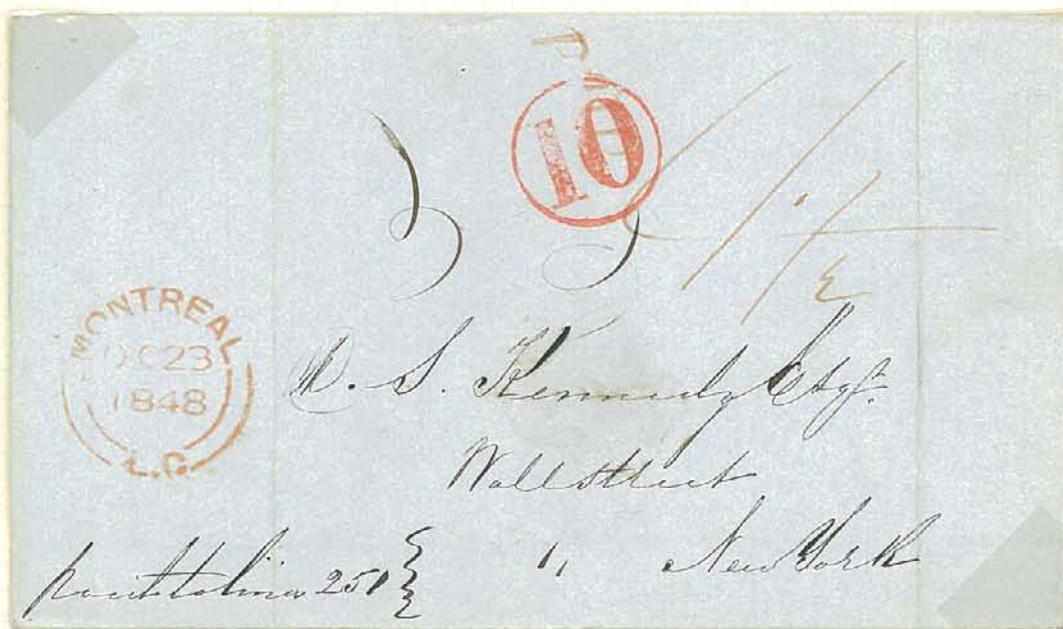 10
MONTREAL
DEC 23
1848
L.C.
D. S. Kennedy Esqr.
Wall Street
" New York
paid to lines 25¢